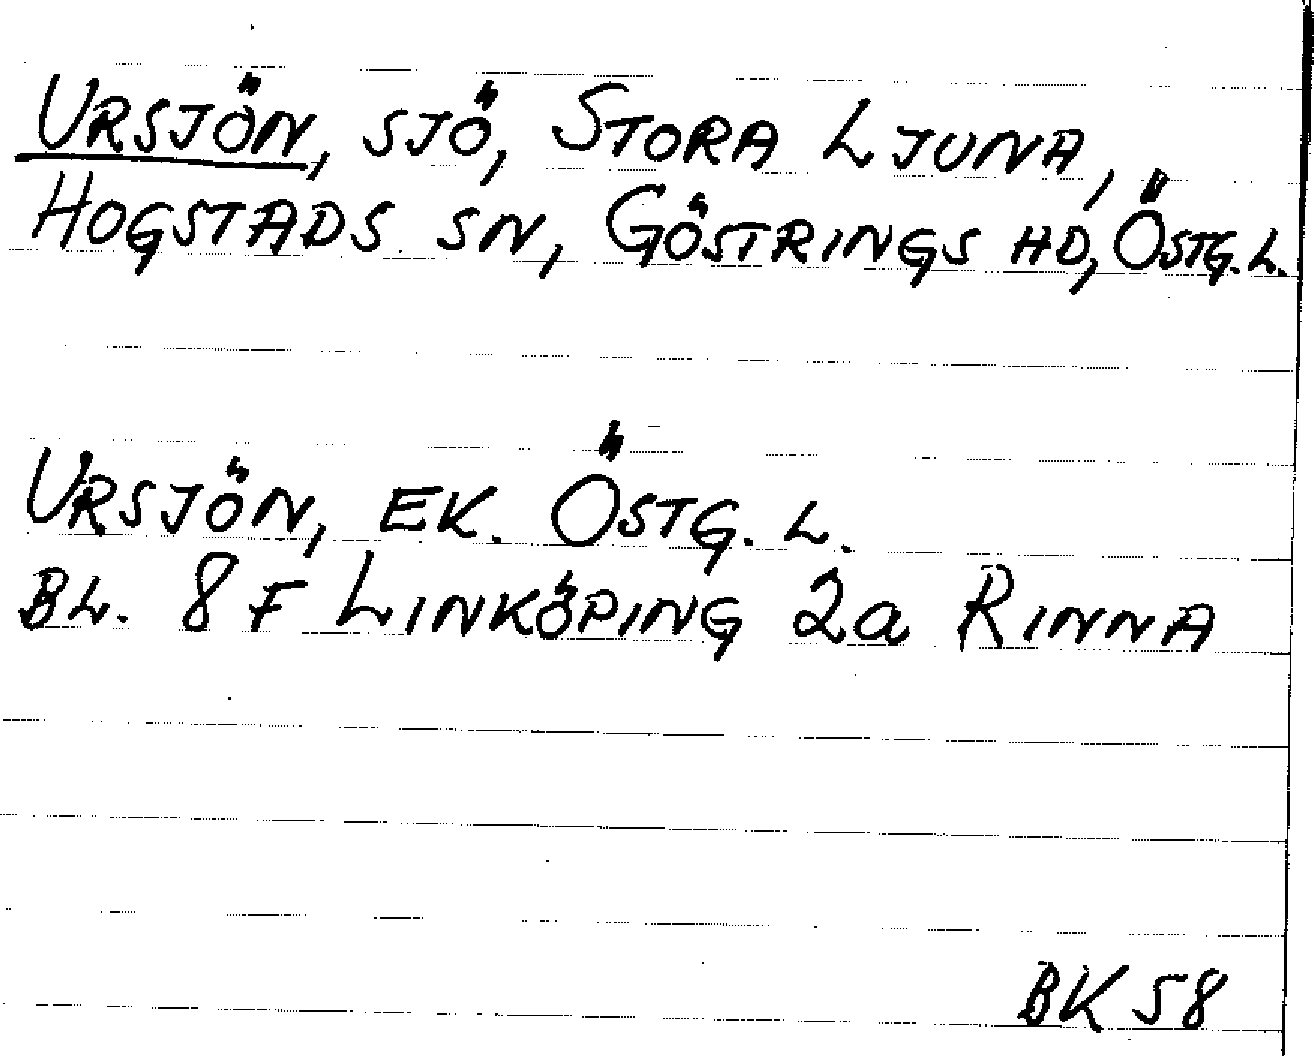 URSJÖN, SJÖ, STORA LJUNA,
HOGSTADS SN, GÖSTRINGS HD, ÖSTG. L.
URSJÖN, EK. ÖSTG. L.
BL. 8 F LINKÖPING 2a RINNA
BK 58